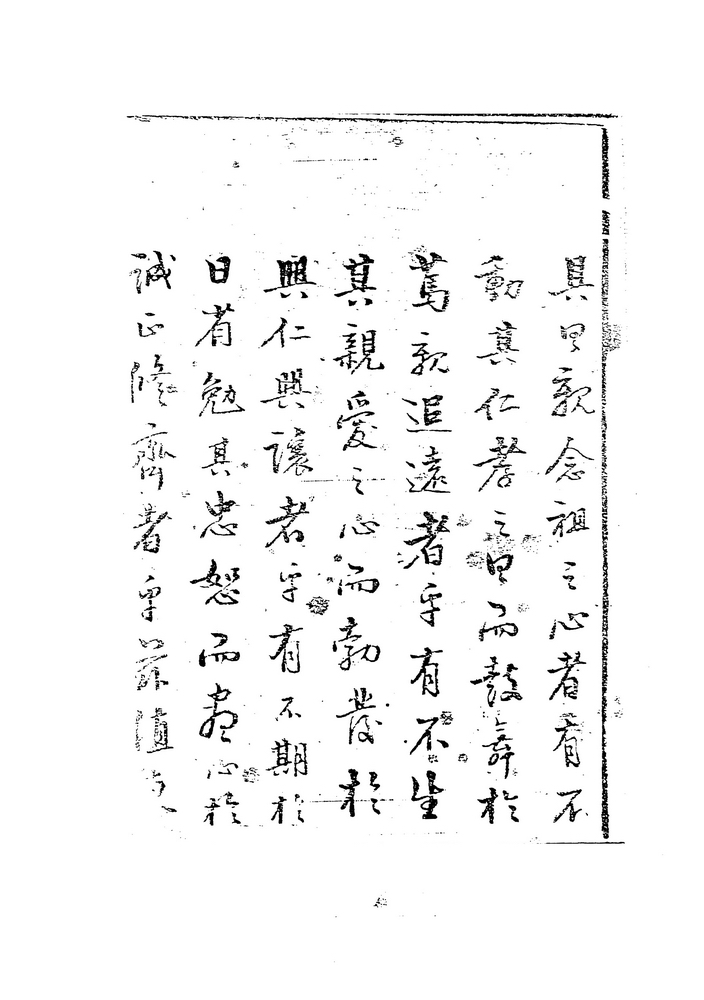 具思親念祖之心者有不
動其仁孝之思而鼓舞於
篤親追遠者乎有不生
其親愛之心而勃發於
興仁興讓者乎有不期於
日省勉其忠恕而盡心於
誠正修齊者乎茲值